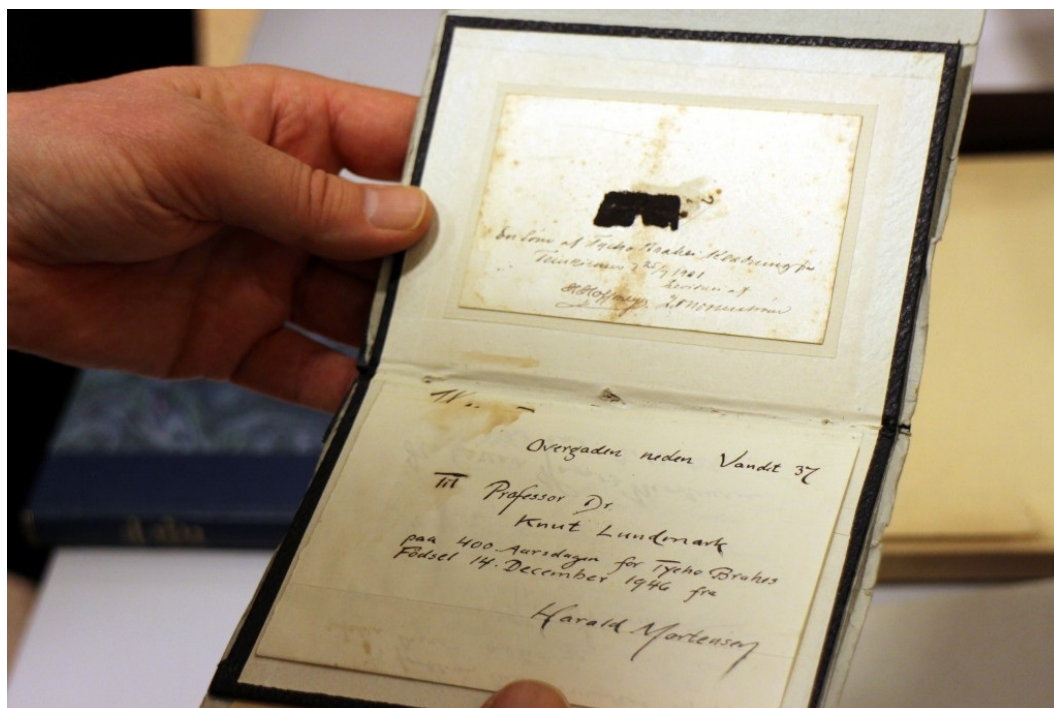 En Søm af Tycho Brahes Klædning fra
25/9 1901
foræret af
H. Hoffmeyer
Overgaden neden Vandet 37
Til Professor Dr.
Knut Lundmark
paa 400 Aarsdagen for Tycho Brahes
Fødsel 14. December 1946 fra
Harald Mortensen